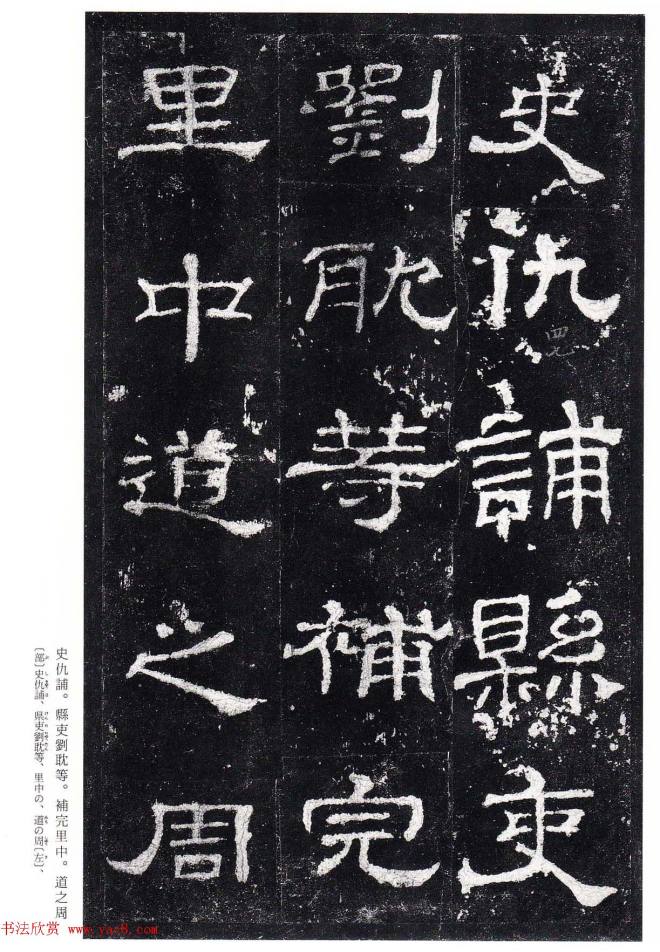 史仇誧縣吏
劉耽等補完
里中道之周
四九
史仇誧。縣吏劉耽等。補完里中。道之周
〔部〕史仇誧、県吏劉耽等、里中の、道の周〔左〕、
书法欣赏 www.yac8.com